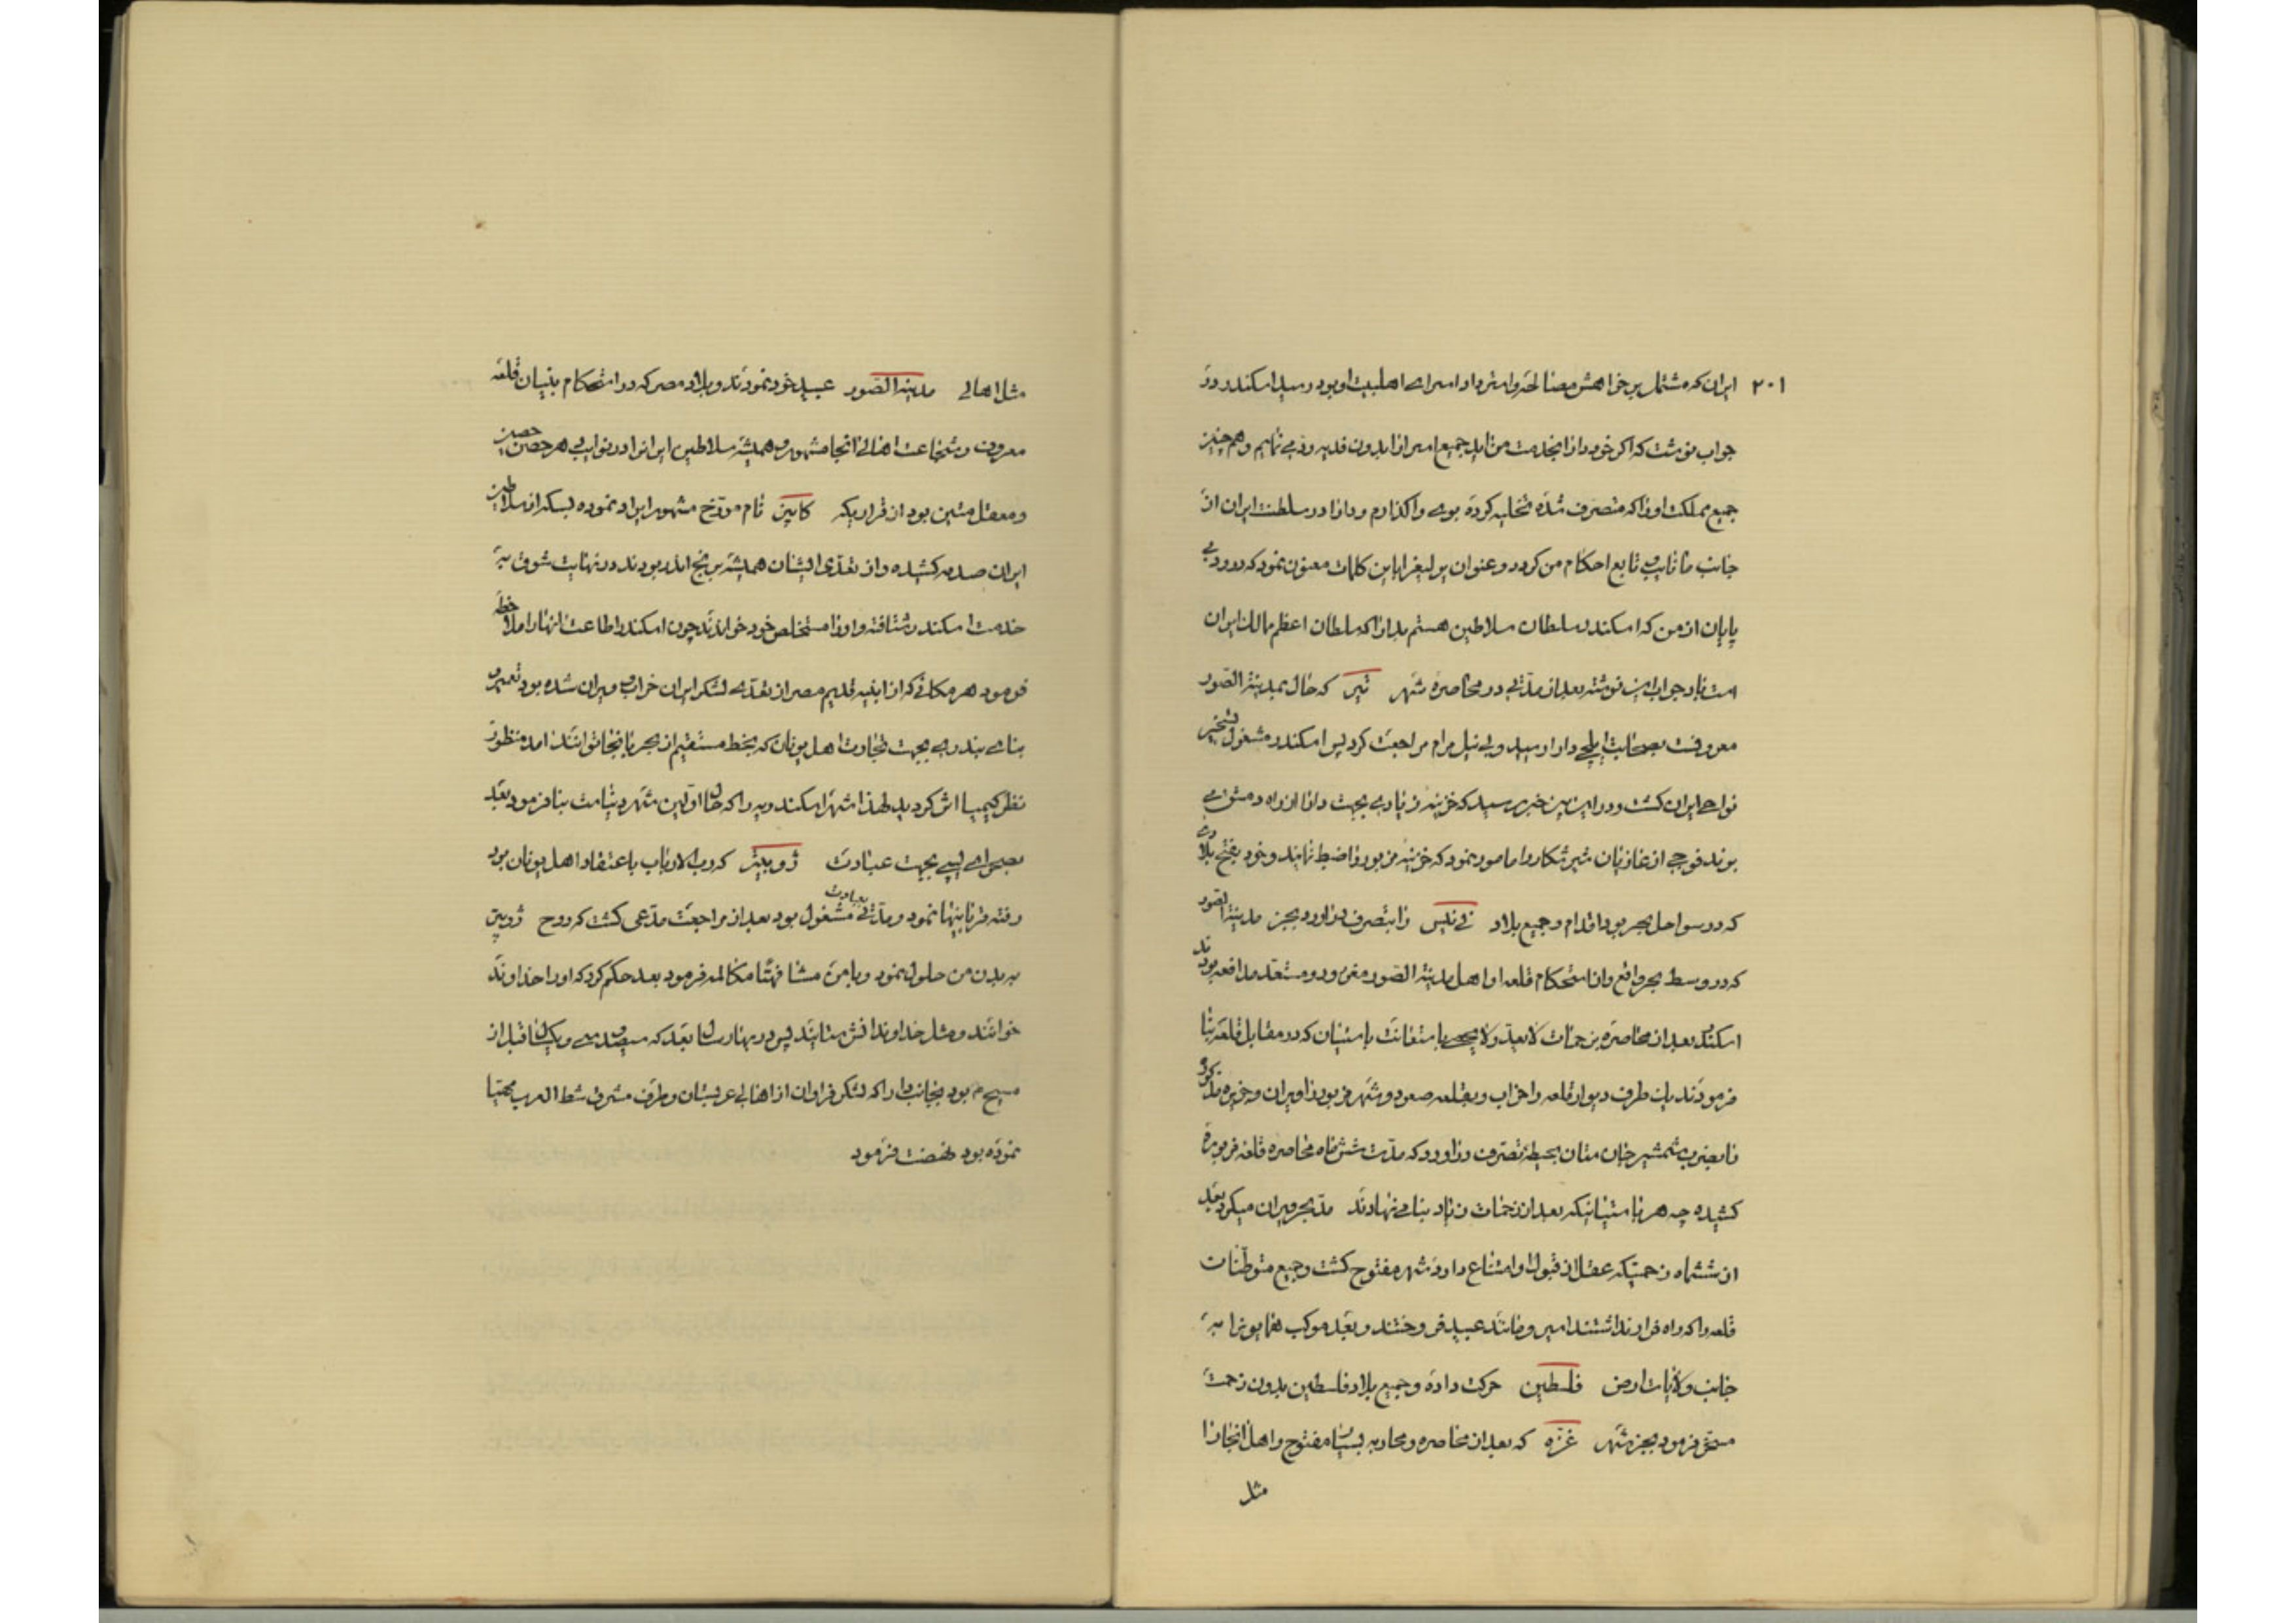 ۲۰۱ ایران که مشتمل بر خواهش مصالحه و استرداد اسرای اهلبیت او بود رسید اسکندر در
جواب نوشت که اگر خود دارا بخدمت من آید جمیع اسرا را بدون فدیه رد می نمایم و همچنین
جمیع مملکت او را که متصرف شده تخلیه کرده بوی واگذارم و دارا در سلطنت ایران از
جانب ما نایب و تابع احکام من گردد و عنوان پروانه را باین کلمات معنون نمود که درود بی
پایان از من که اسکندر سلطان سلاطین هستم بدارا که سلطان اعظم ممالک ایران
است باد جواب این نوشته بعد از مدتی در محاصره شهر تیر که حال بمدینة الصور
معروفست بصحابت ایلچی دارا رسید و بی نیل مرام مراجعت کرد پس اسکندر مشغول تسخیر
نواحی ایران گشت و در این بین خبر رسید که خزینه زیادی بجهت دارا از راه دمشق می
برند فوجی از غازیان شیر شکار را مامور نمود که خزینه مزبور را ضبط نمایند و خود بفتح بلادی
که در سواحل بحر بود اقدام و جمیع بلاد فی نیس را بتصرف در اورد بجز مدینة الصور
که در وسط بحر واقع و از استحکام قلعه او اهل مدینة الصور مغرور و مستعد مدافعه بودند
اسکندر بعد از محاصره بزحمات لا یعد و لا یحصی باستعانت باستیان که در مقابل قلعه بنا
فرمودند یک طرف دیوار قلعه را خراب و بقلعه صعود و شهر مزبور را ویران و جزیره مذکور
را بضرب شمشیر جان ستان بحیطه تصرف در اورد که مدت شش ماه محاصره قلعه مزبوره
کشیده چه هر باستیانیکه بعد از زحمات زیاد بنا می نهادند مد بحر ویران میکرد بعد
از ششماه زحمتیکه عقل از قبول او امتناع دارد شهر مفتوح گشت و جمیع متوطنات
قلعه را که راه فرار نداشتند اسیر و مانند عبید فروختند و بعد موکب همایون را به
جانب ولایات ارض فلسطین حرکت داده و جمیع بلاد فلسطین بدون زحمت
مسخر فرمود بجز شهر غزه که بعد از محاصره و محاربه بسیار مفتوح و اهل انجا را
مثل
مثل اهالی مدینة الصور عبید خود نمودند و بلاد مصر که در استحکام بنیان قلعه
معروف و بشجاعت اهالی انجا مشهور و همیشه سلاطین ایران را در نوایب هر حصن حصین
و معقل متین بود از قراریکه کاپین نام مورخ مشهور ایراد نموده بسکه از سلاطین
ایران صدمه کشیده و از تعدی ایشان همیشه برنج اندر بودند در نهایت شوق به
خدمت اسکندر شتافته و او را مستخلص خود خواندند چون اسکندر اطاعت انها را ملاحظه
فرمود هر مکانی که از ابنیه قدیم مصر از تعدی لشکر ایران خراب و ویران شده بود تعمیر و
بنای بندری بجهت تجارت اهل یونان که بخط مستقیم از بحر بانجا توانند امد منظور
نظر کیمیا اثر گردید لهذا شهر اسکندریه را که حال اولین شهر دنیا است بنا فرمود بعد
بصحرای لیبی بجهت عبادت ژوپیتر که رب الارباب باعتقاد اهل یونان بود
رفته قربانیها نمود و مدتی بعبادت مشغول بود بعد از مراجعت مدعی گشت که روح ژوپیتر
به بدن من حلول نمود و با من مشافهتا مکالمه فرمود بعد حکم کرد که او را خداوند
خوانند و مثل خداوندانش ستایند پس در بهار سال بعد که سیصد و سی و یک سال قبل از
مسیح م بود بجانب دارا که لشکر فراوان از اهالی عربستان و طرف مشرق شط العرب مهیا
نموده بود نهضت فرمود